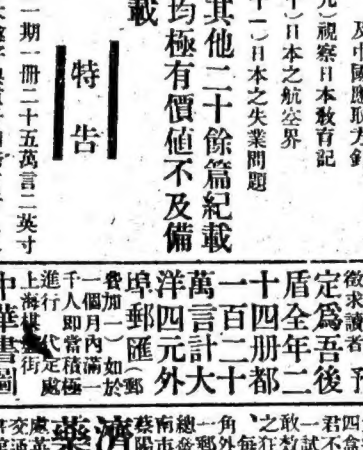 及中國應取方針
九）視察日本教育記
十）日本之航空界
十一）日本之失業問題
其他二十餘篇紀載
均極有價値不及備
載
特告
一期一冊二十五萬言二英寸
徵求讀者
定爲吾後
盾全年二
十四册都
一百二十
萬言計大
洋四元外
埠郵匯（郵
費加一）如於
一個月內滿一
千人卽當積極
進行 代定處
上海棋盤街
中華書圖
四盒
君不
一試
敢
之狂
每
角外
一郵
總
南市
蔡陽
濟
藥
處英
交通